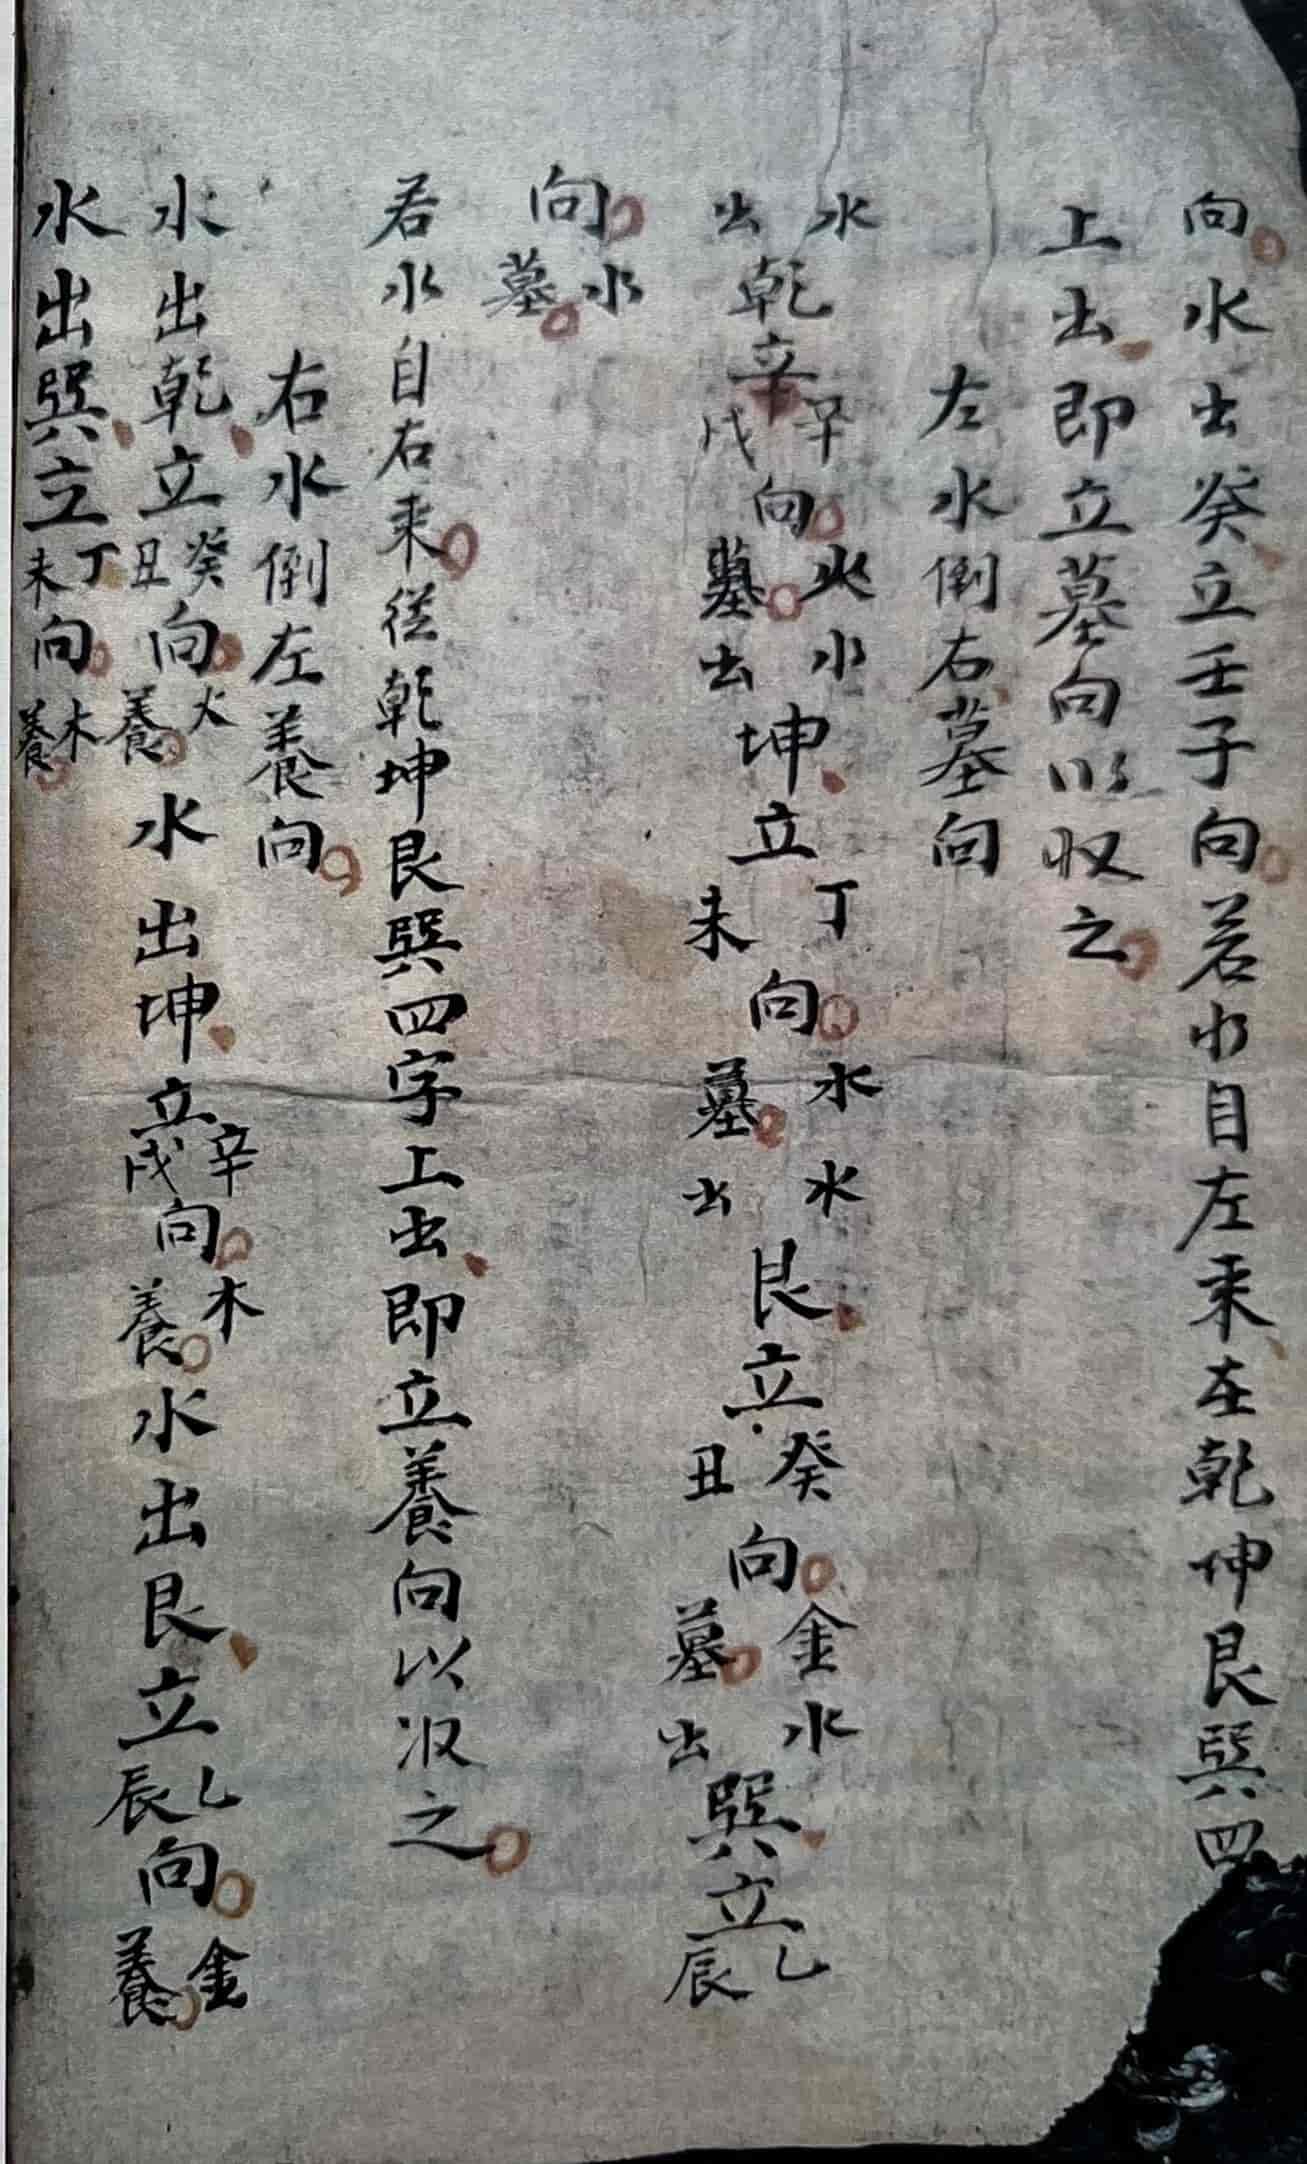 向水出癸立壬子向若水自左来在乾坤艮巽四
上出即立墓向以収之
左水倒右墓向
水出乾辛辛戌向火墓水出坤立丁未向水墓水出艮立癸丑向金墓水出巽立乙辰
向水墓
若水自右来從乾坤艮巽四字上出即立養向以収之
右水倒左養向
水出乾立癸丑向火養水出坤立辛戌向木養水出艮立乙辰向金養
水出巽立丁未向木養